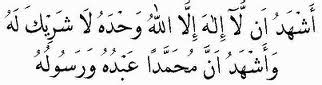 أَشْهَدُ اَن لَّآ إِلٰهَ إِلَّا اللّٰهُ وَحْدَهُ لَا شَرِيْكَ لَهُ
وَأَشْهَدُ اَنَّ مُحَمَّدًا عَبْدُهُ وَرَسُولُهُ